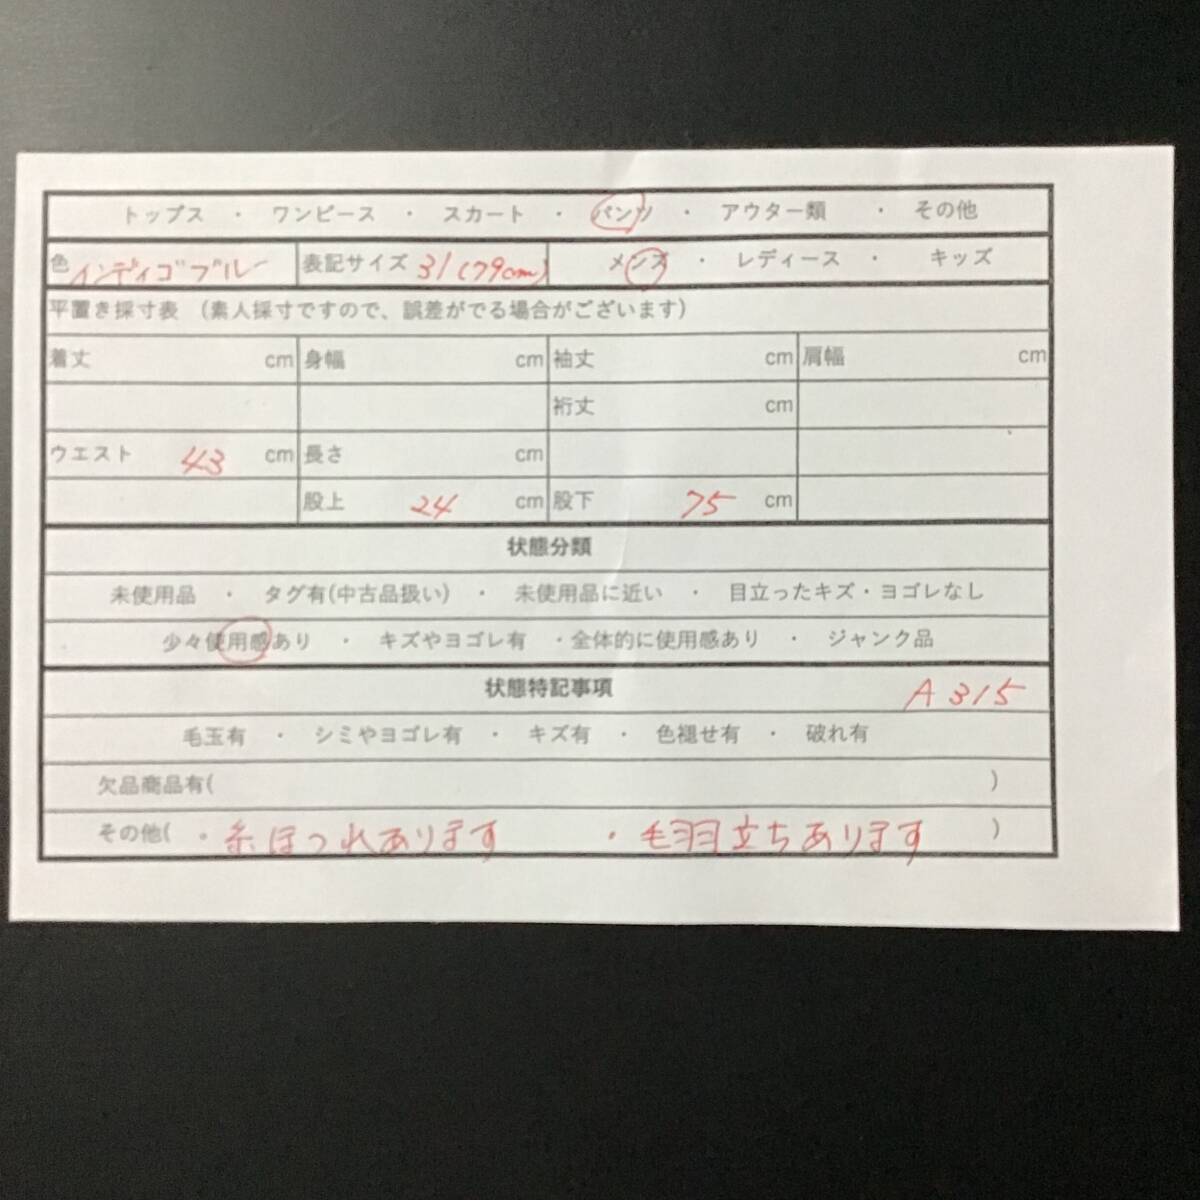 トップス ・ ワンピース ・ スカート ・ パンツ ・ アウター類 ・ その他
色 インディゴブルー 表記サイズ 31(79cm) メンズ ・ レディース ・ キッズ
平置き採寸表 (素人採寸ですので、誤差がでる場合がございます)
着丈 cm 身幅 cm 袖丈 cm 肩幅 cm
裄丈 cm
ウエスト 43 cm 長さ cm
股上 24 cm 股下 75 cm
状態分類
未使用品 ・ タグ有(中古品扱い) ・ 未使用品に近い ・ 目立ったキズ・ヨゴレなし
少々使用感あり ・ キズやヨゴレ有 ・全体的に使用感あり ・ ジャンク品
状態特記事項 A315
毛玉有 ・ シミやヨゴレ有 ・ キズ有 ・ 色褪せ有 ・ 破れ有
欠品商品有( )
その他( ・糸ほつれあります ・毛羽立ちあります )